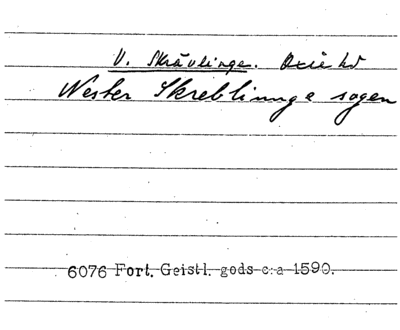 V. Skrävlinge. Oxie hd
Wester Skreblinnge sogen
6076 Fort. Geistl. gods c:a 1590.